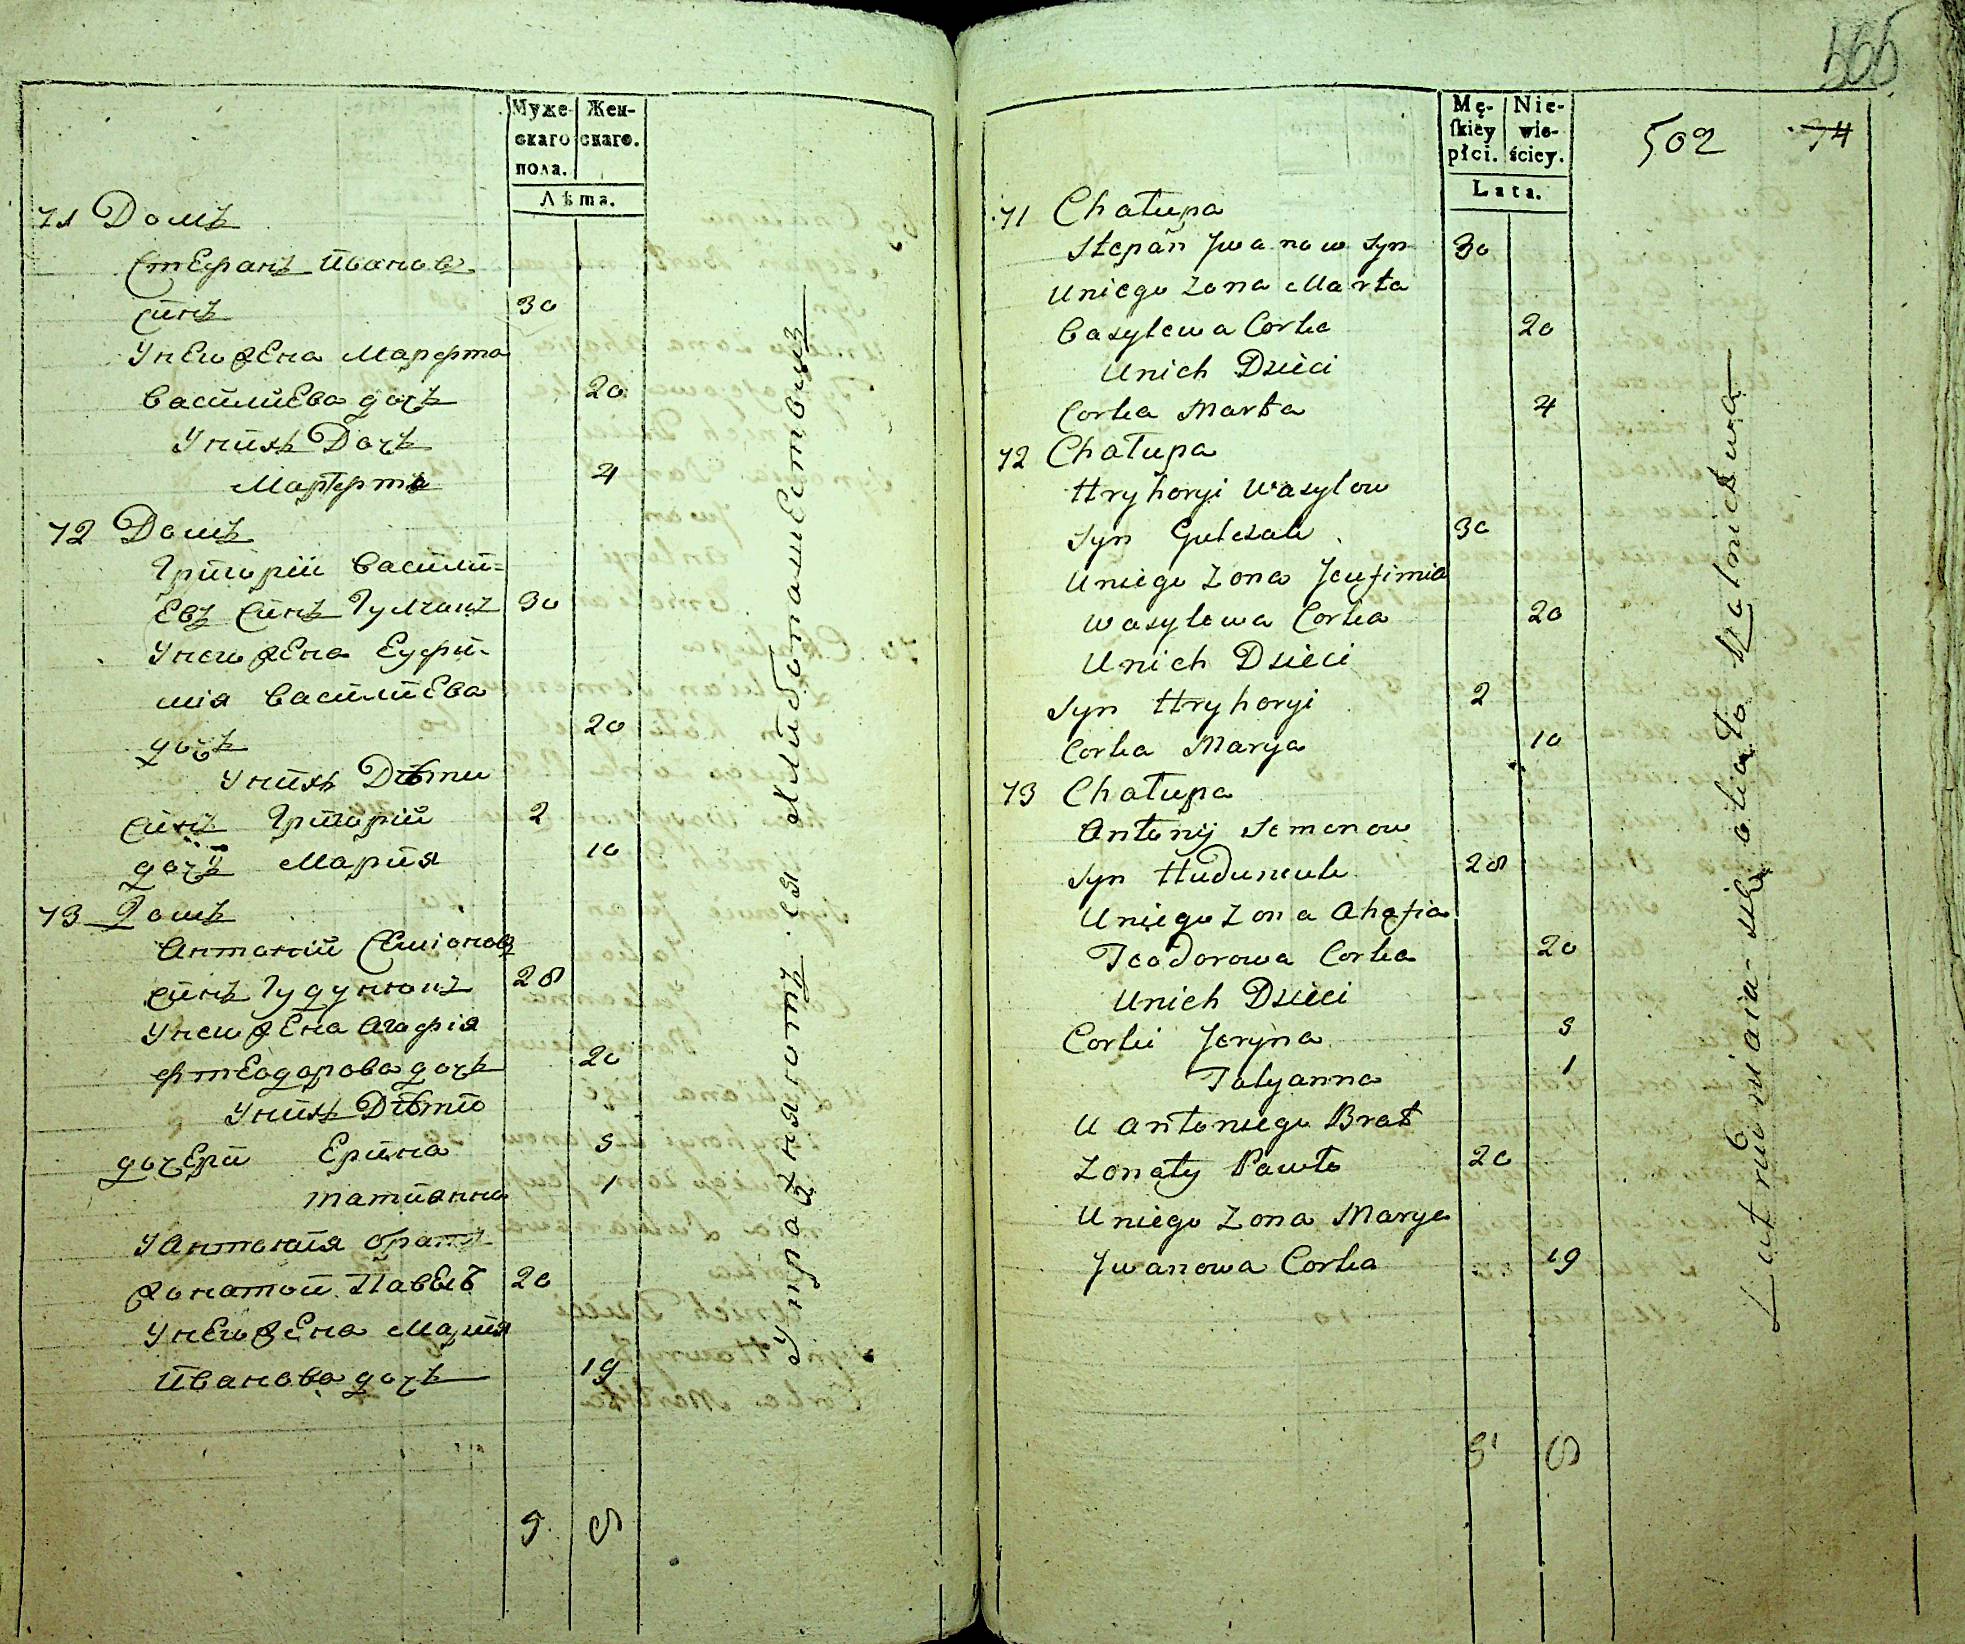 Муже-
скаго
пола.
Жен-
скаго.
Лѣта.
71 Домъ
Стефанъ Иванов
синъ 30
У нЕго жЕна Марфта
ВасилиЕва дочъ 20
У нихъ Дочъ
Марфта 4
72 Домъ
Григорiи Васили=
Евъ Синъ Гулчакъ 30
У него жЕна Еуфи-
мiя ВасилиЕва
дочъ 20
У нихъ Дѣти
Синъ Григорий 2
дочъ Мария 10
73 Домъ
Антонiй СЕмiоновъ
синъ Гудунюкъ 28
У него жЕна Агафiя
фтЕодорова дочъ 20
У нихъ Дѣти
дочЕри Ерина 5
татианна 1
У Антонiя братъ
жонатой ПавЕлъ 20
У нЕго жЕна Мария
Иванова дочъ 19
9 8
Упражняютъ ся хлибопашЕствомъ
565
Mę-
skiey
płci.
Nie-
wie-
ściey.
Lata.
502 74
71 Chałupa
Stepan Jwanow Syn 30
Uniego Zona Marta
Basylewa Corka 20
Unich Dzieci
Corka Marta 4
72 Chałupa
Hryhoryi Wasylow
Syn Gulczak 30
Uniego Zona Jeufimia
Wasylewa Corka 20
Unich Dzieci
Syn Hryhoryi 2
Corka Marya 10
73 Chałupa
Antonij Semenow
Syn Huduneuk 28
Uniego Zona Ahafia
Teodorowa Corka 20
Unich Dzieci
Corki Jeryna 5
Tatyanna 1
U Antoniego Brat
Zonaty Pawło 20
Uniego Zona Marya
Jwanowa Corka 19
9 8
Zatrudniaia sie okiało Rolnictwa